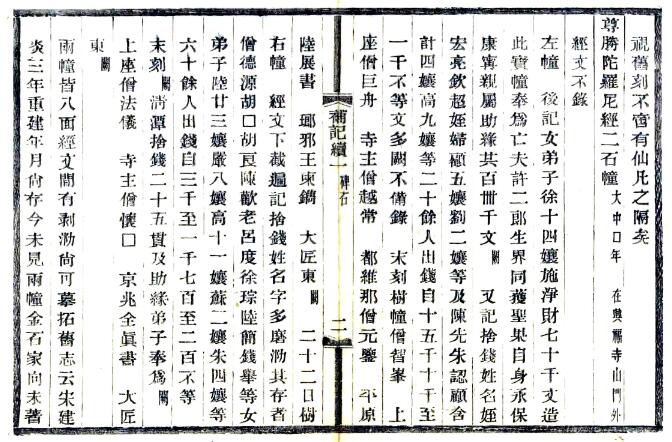 視舊刻不啻有仙凡之隔矣
尊勝陀羅尼經二石幢 大中口年 在興福寺山門外
經文不錄
左幢 後記女弟子徐十四孃施淨財七十千文造
此寶幢奉爲亡夫許二郎生界同獲聖果自身永保
康寧親屬助緣共百卌千文 闕 又記捨錢姓名姪
宏亮欽超姪婦顧五孃劉二孃等及陳先朱認顧含
計四孃高九孃等二十餘人出錢自十五千十千至
一千不等文多闕不備錄 末刻樹幢僧智峯 上
座僧巨舟 寺主僧越常 都維那僧元鑒 平原
補記續一 碑石 二
陸展書 瑯邪王東鐫 大匠東 闕 二十二日樹
右幢 經文下截遍記捨錢姓名字多磨泐其存者
僧德源胡口胡陳歡老呂度徐琮陸簡錢舉等女
弟子陸廿三孃嚴八孃高十一孃蘇二孃朱四孃等
六十餘人出錢自三千至一千七百至二百不等
末刻 闕 清潭捨錢二十五貫及助緣弟子奉爲 闕
上座僧法儀 寺主僧懷口 京兆全眞書 大匠
東 闕
兩幢皆八面經文間有剥泐尚可摹拓舊志云宋建
炎三年重建年月尚存今未見兩幢金石家向未著